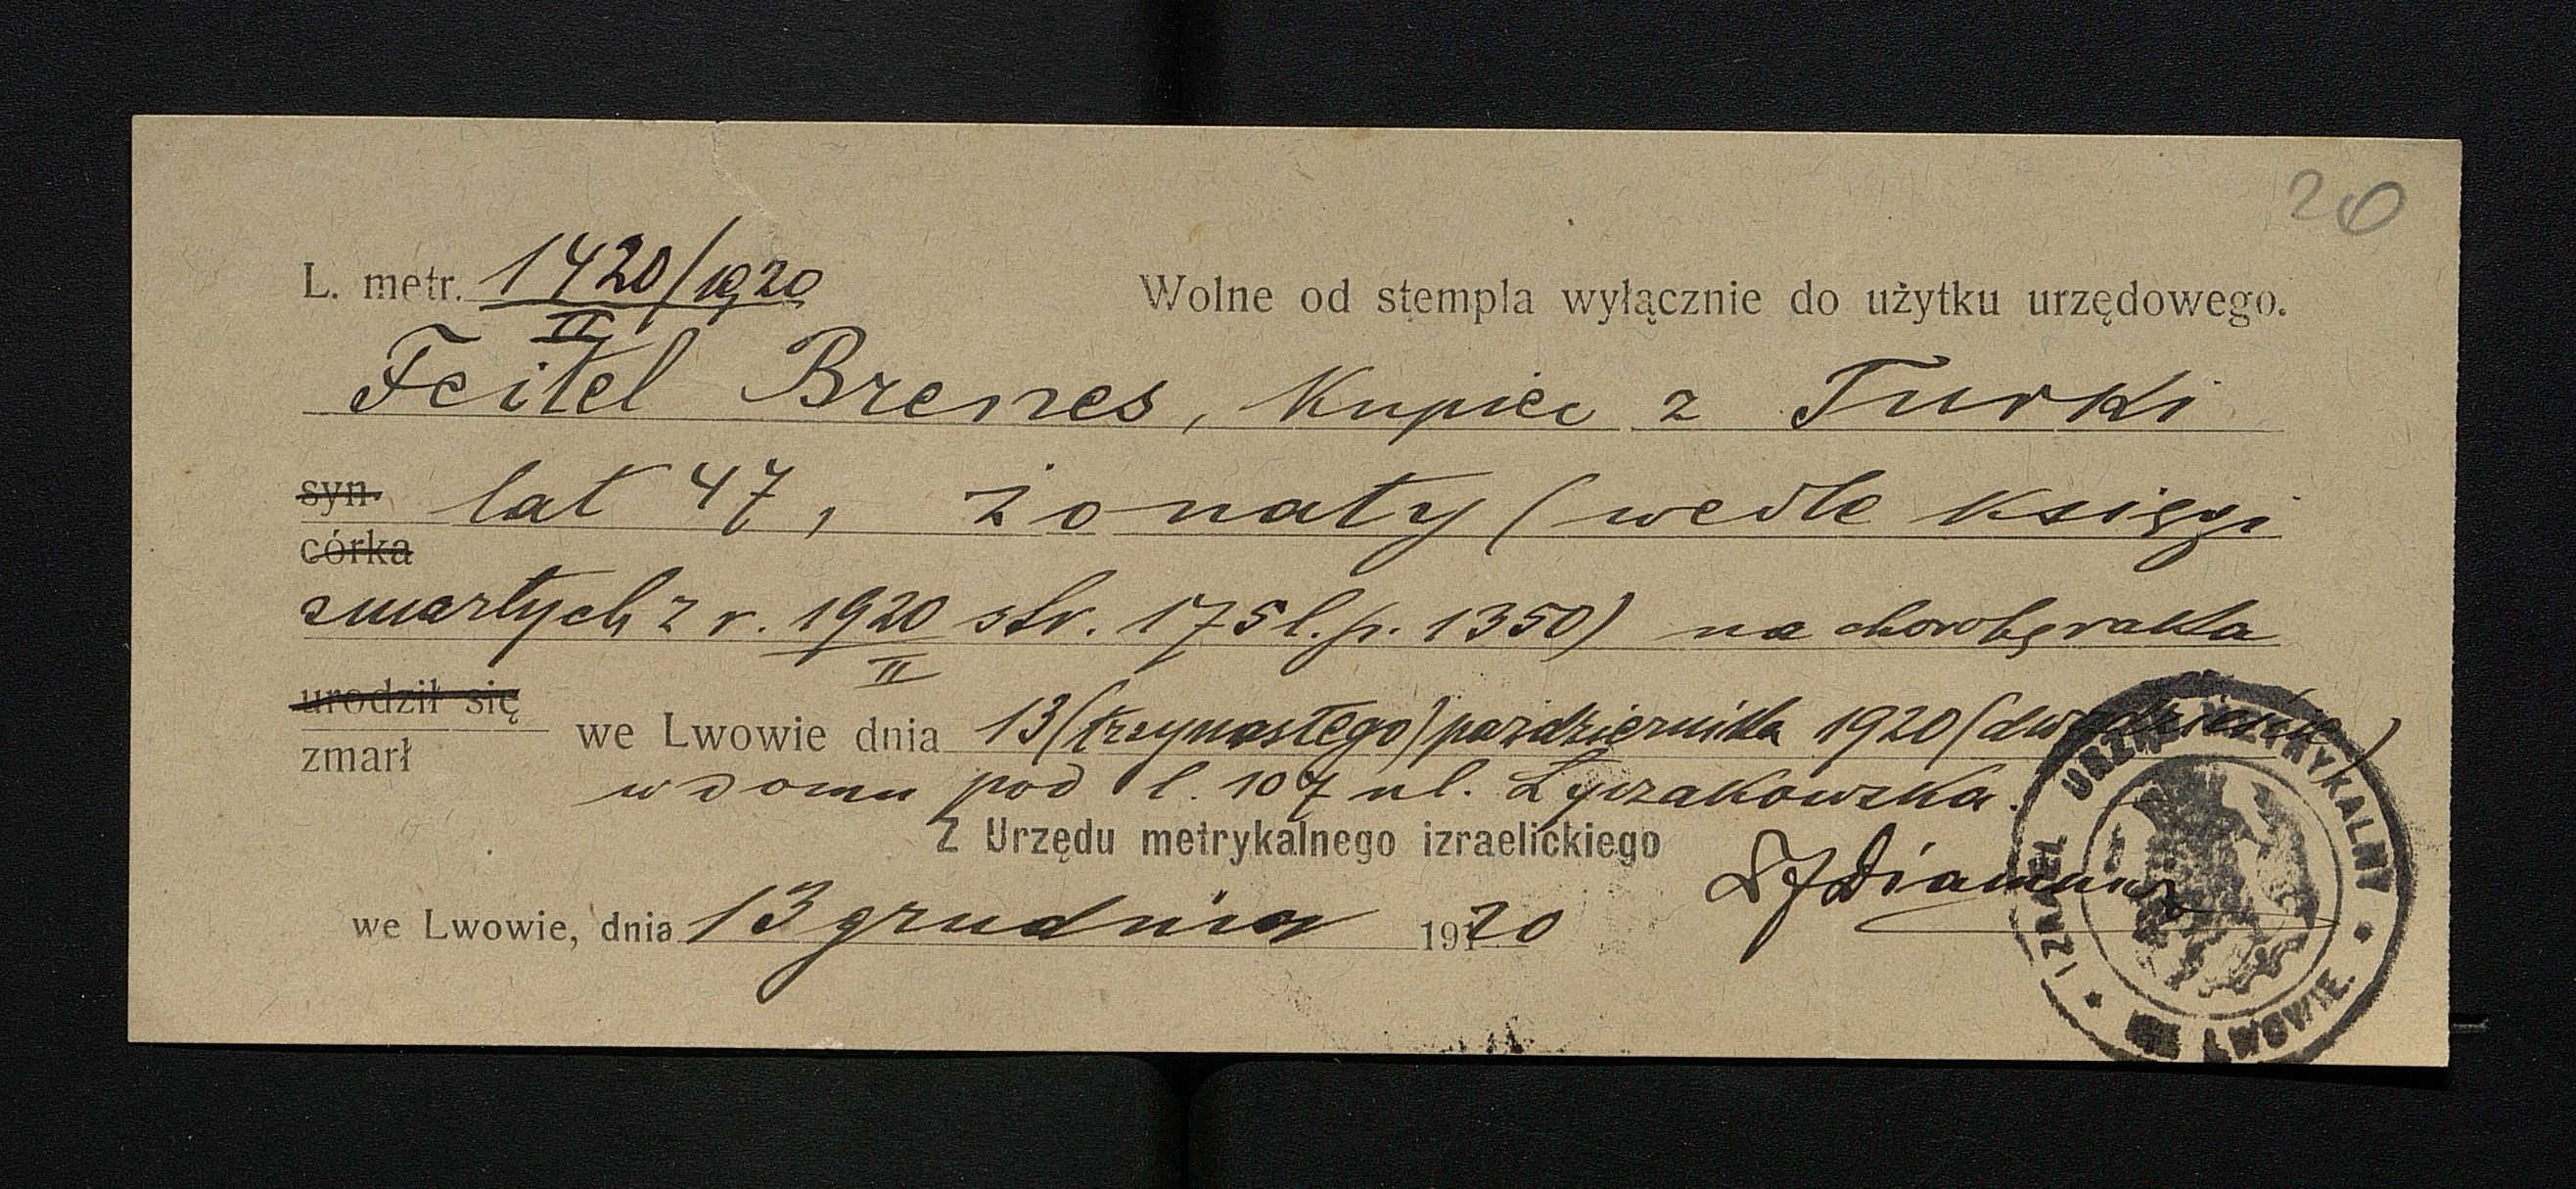 20
L. metr. 1420/1920 Wolne od stempla wyłącznie do użytku urzędowego.
II
Feitel Brenes, kupiec z Turki
syn lat 47, żonaty (wedle księgi
córka
zmarłych z r. 1920 str. 175 l. p. 1350) na chorobę raka
II
urodził się
zmarł we Lwowie dnia 13 (trzynastego) października 1920 (dwadzieście)
w domu pod l. 107 ul. Łyczakowska.
Z Urzędu metrykalnego izraelickiego
we Lwowie, dnia 13 grudnia 1920
Diamant
IZRAEL. URZĄD METRYKALNY
WE LWOWIE.